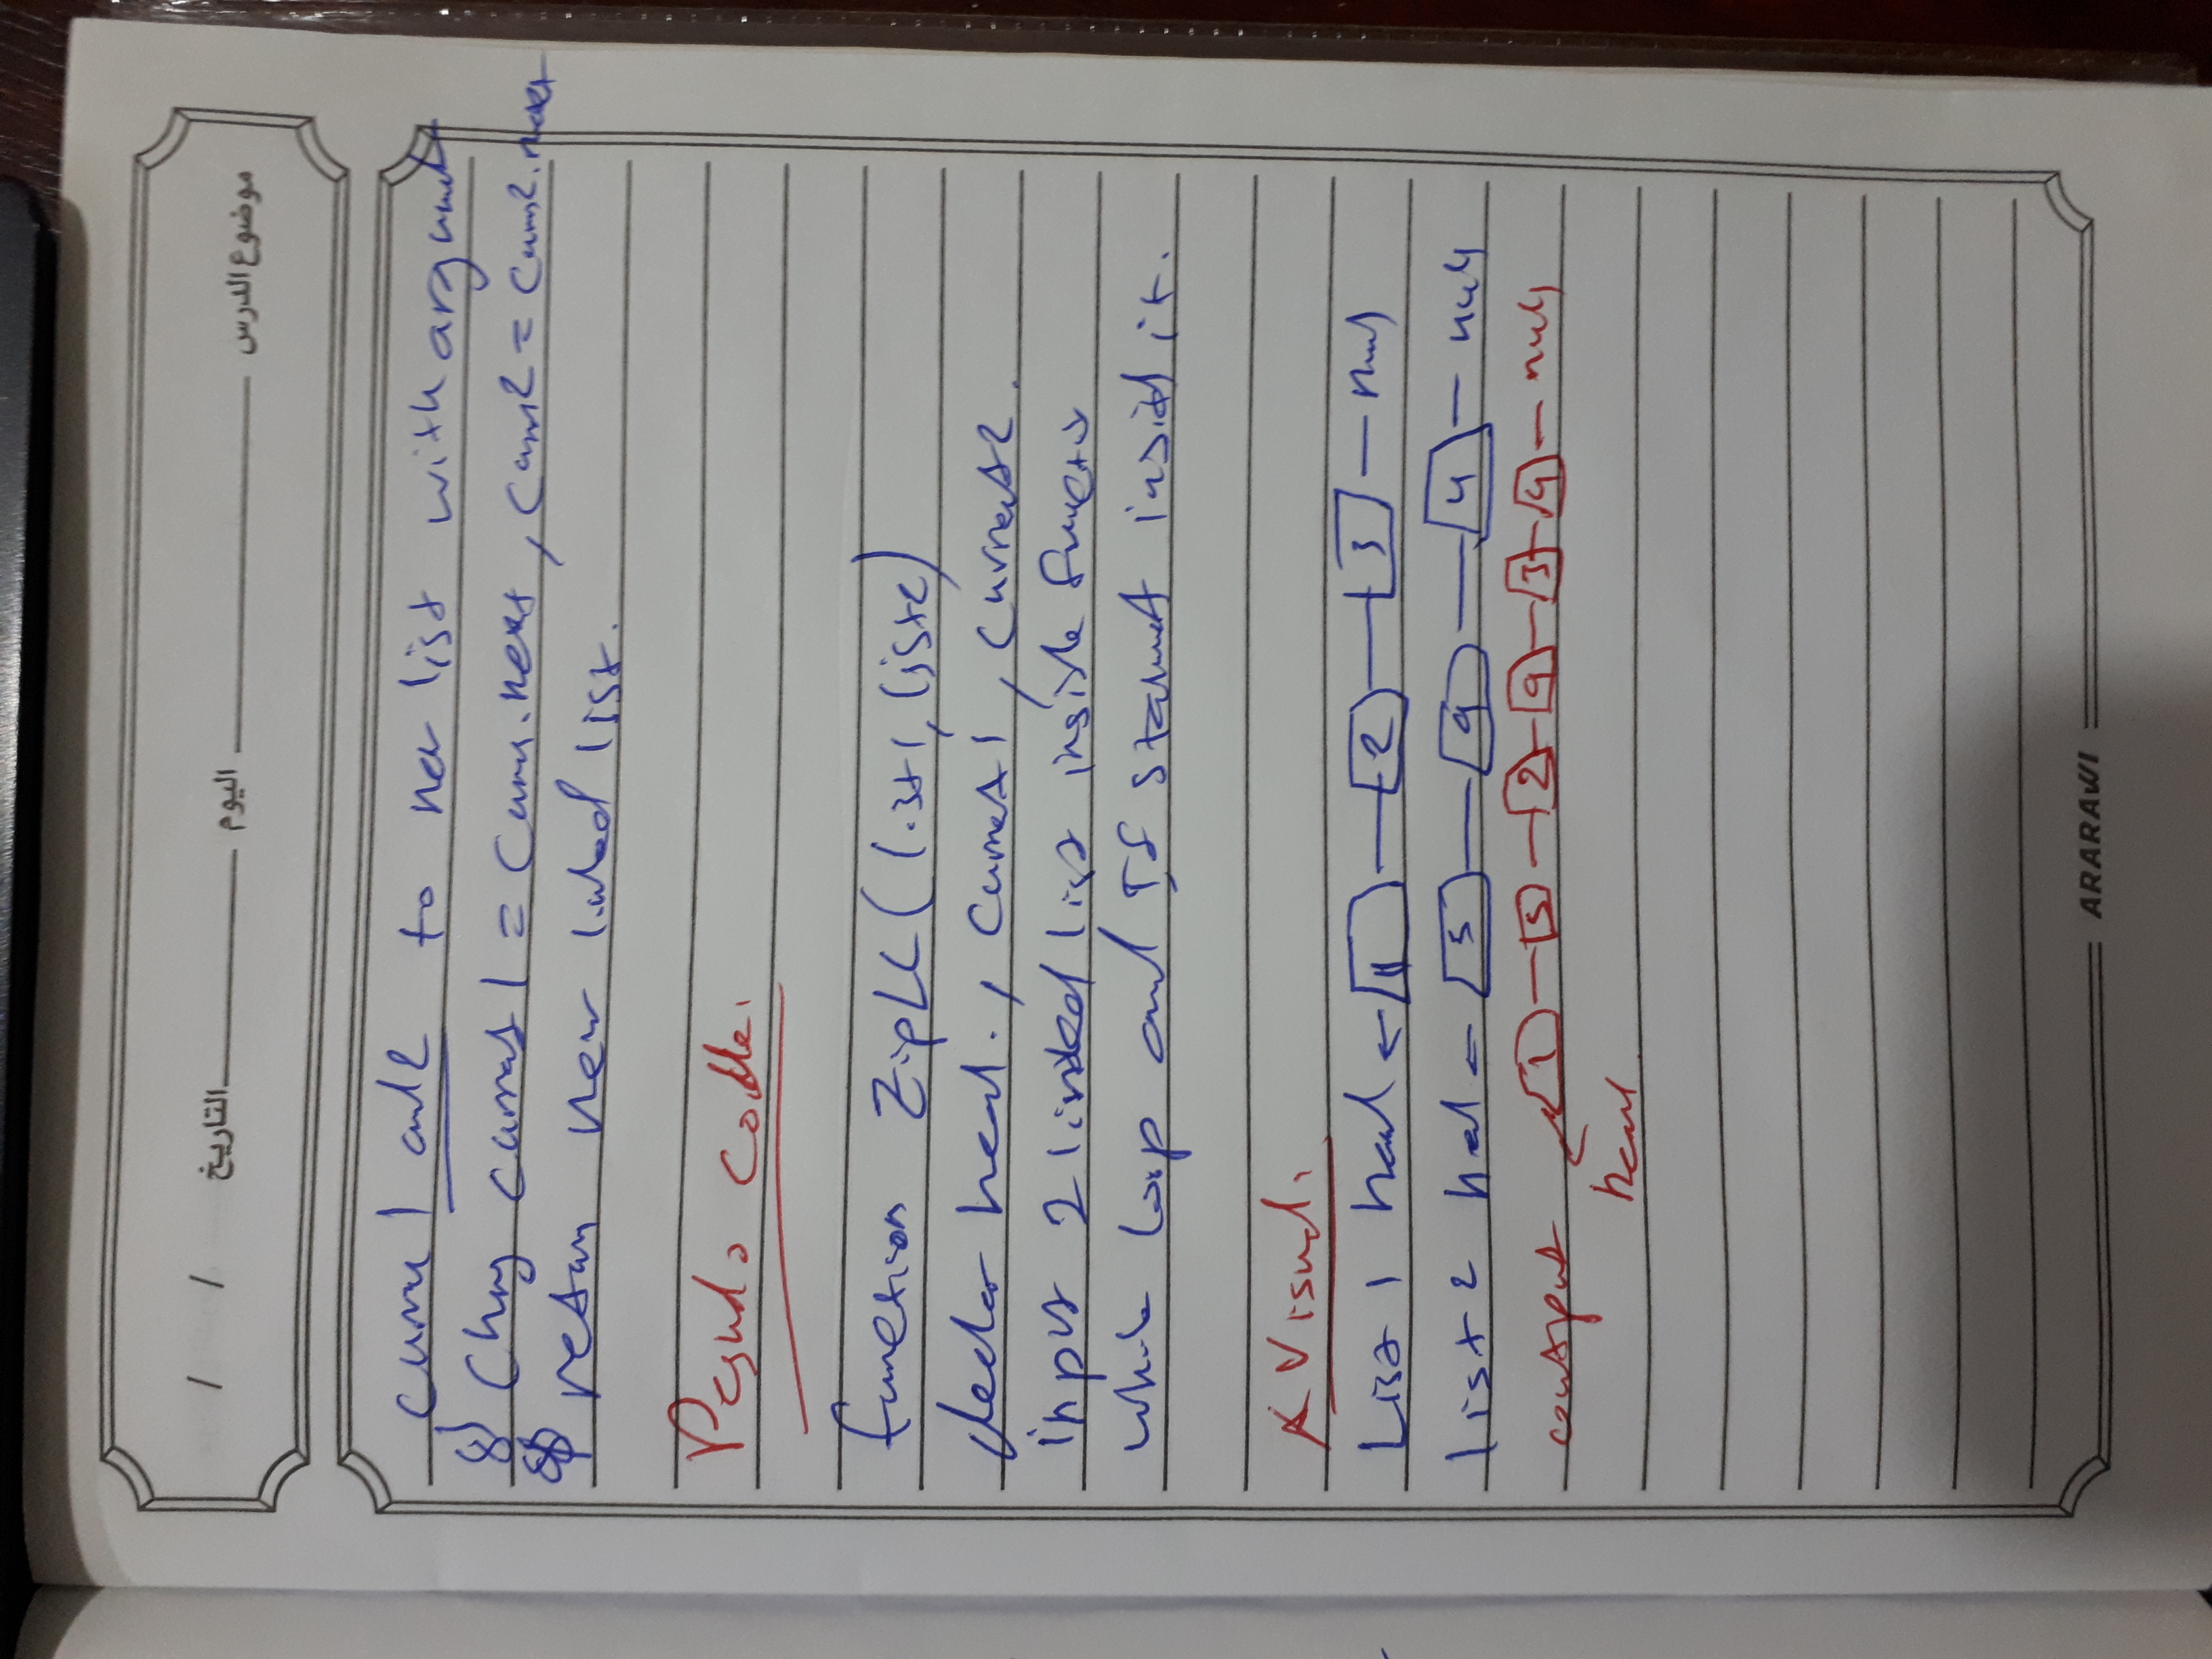 موضوع الدرس ــــــ اليوم ــــــ التاريخ / /
curre 1 and 2 to new list with argument
8) Chng current 1 = Curre.next, Curre2 = Curre2.next
return new linked list.
Pesudo code.
function ZipLL(list1, list2)
declar head., Current1, Current2.
input 2 linked list inside function
while loop and IF statement insid it.
Visual.
List 1 head ← 1 — 2 — 3 — null
list 2 head ← 5 — 9 — 4 — null
output 1 — 5 — 2 — 9 — 3 — 4 — null
head
ARARAWI